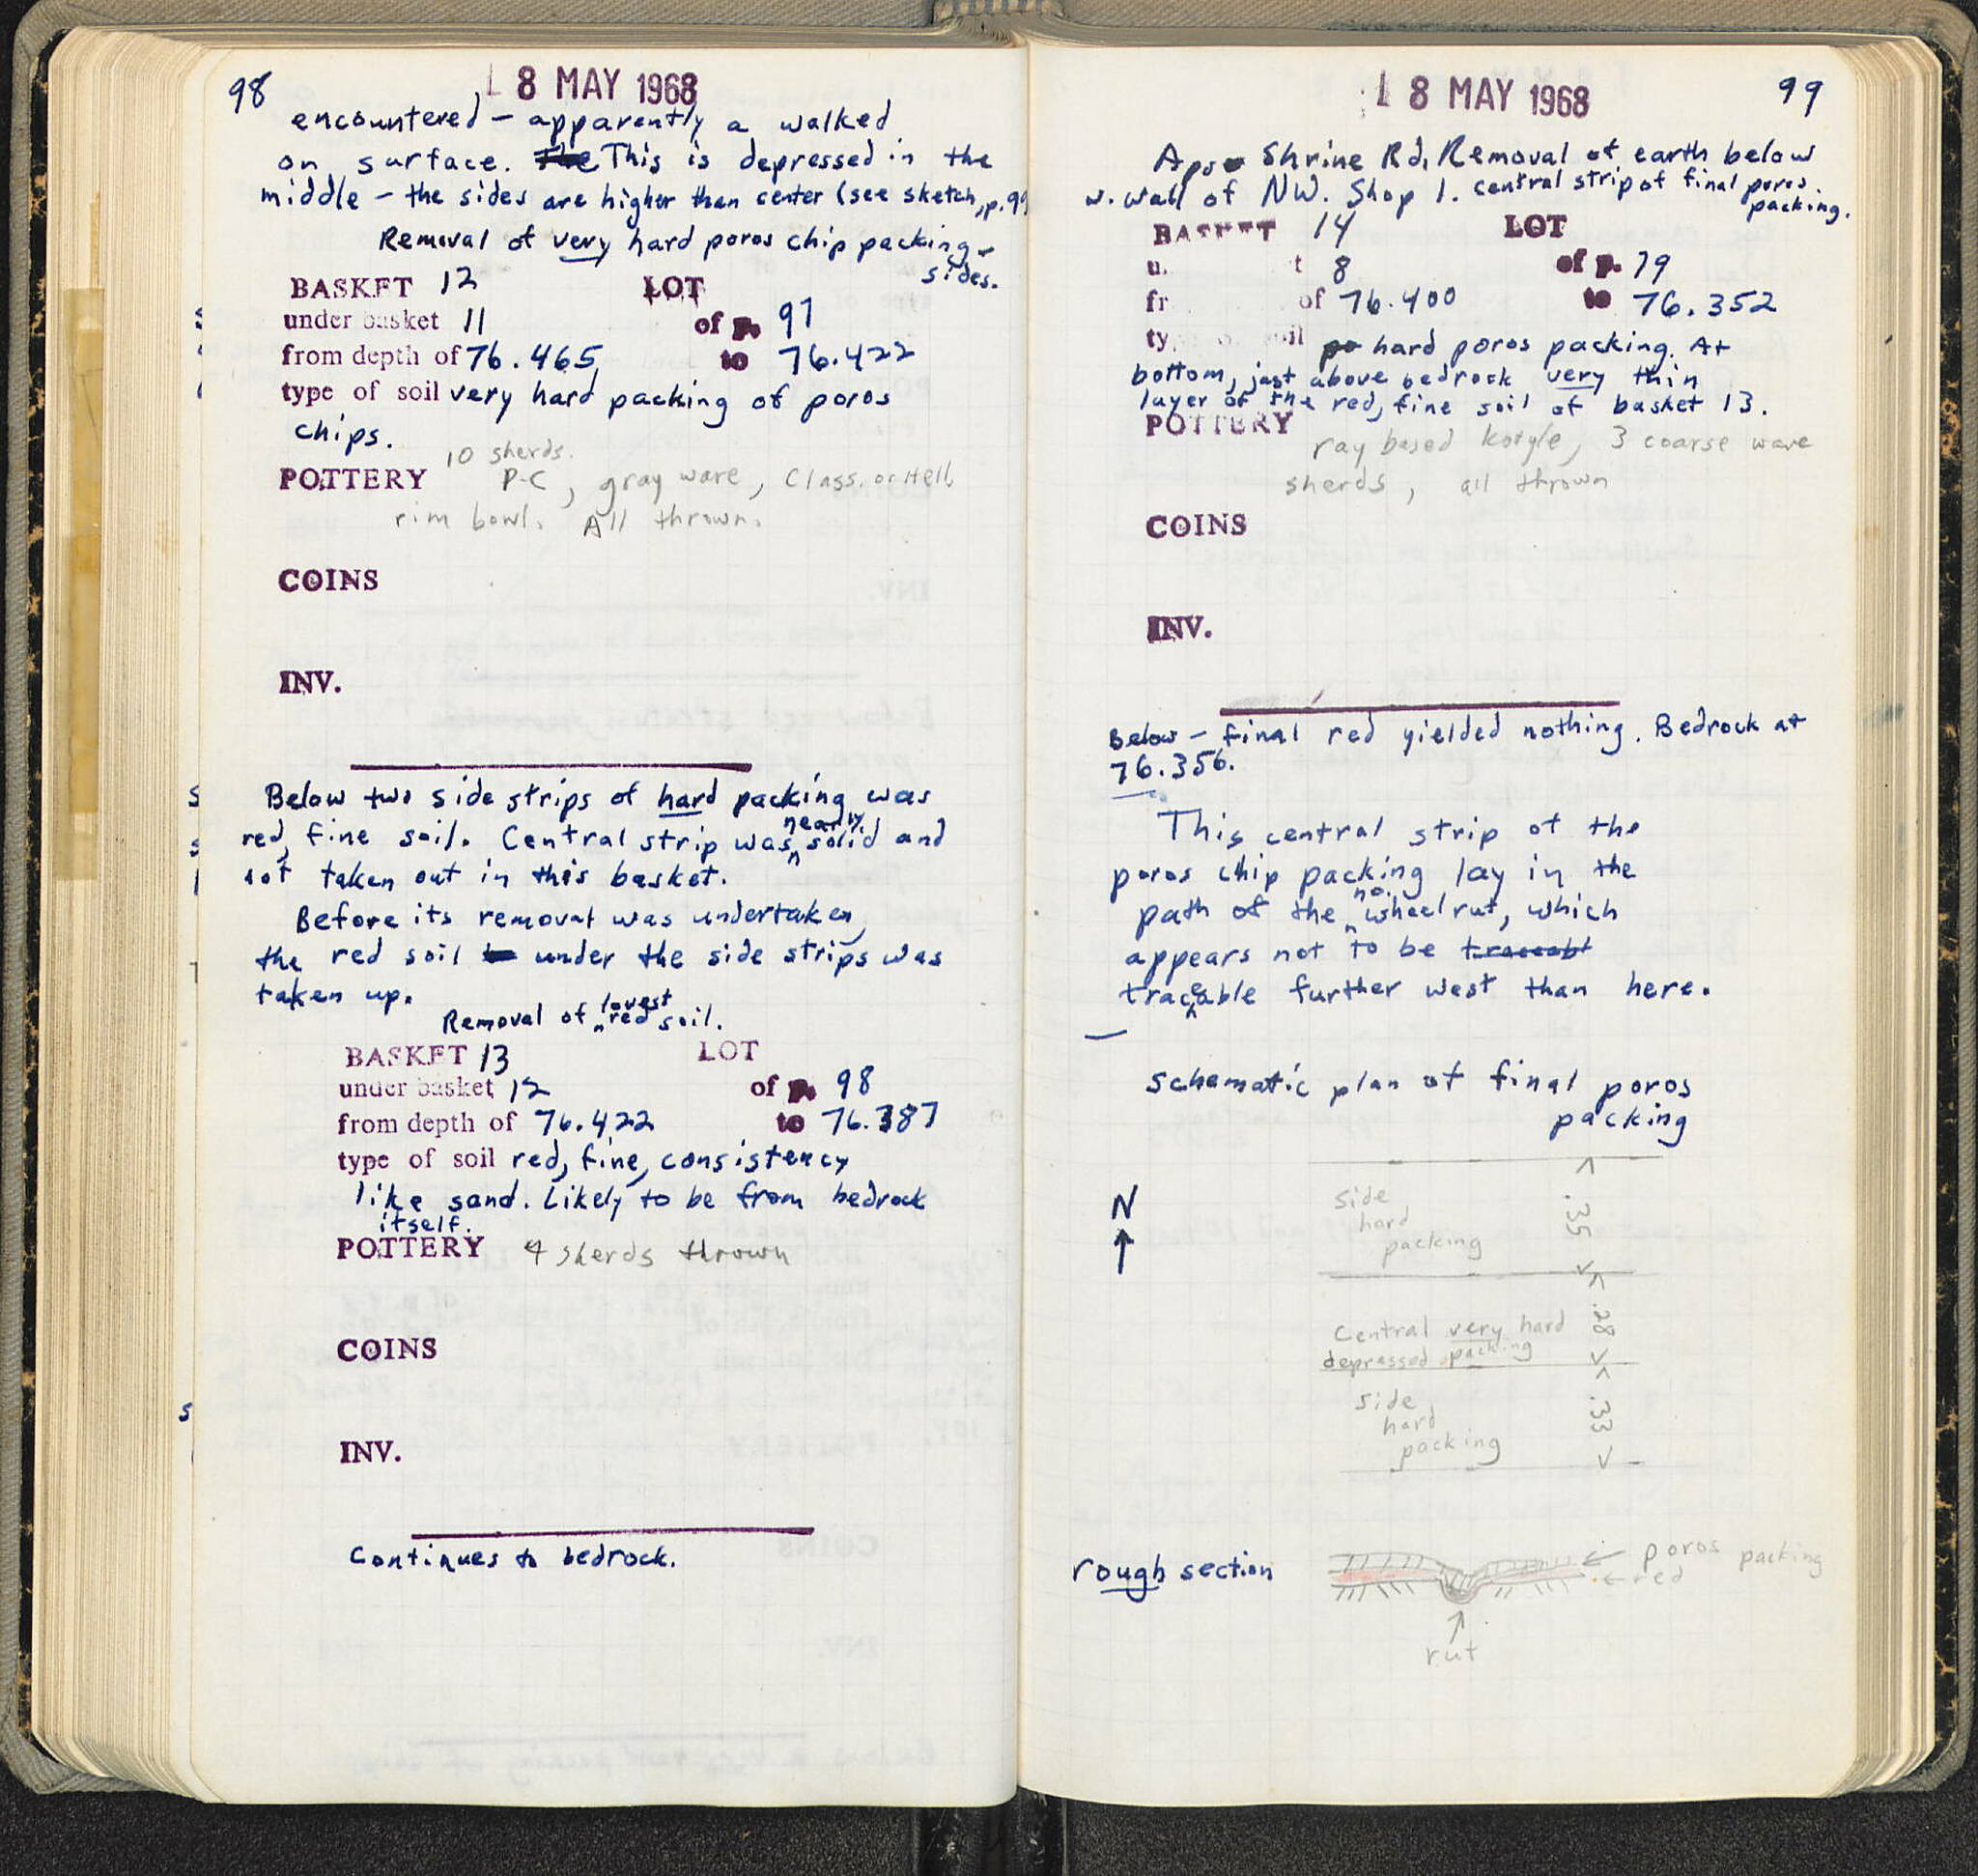 98
8 MAY 1968
encountered - apparently a walked
on surface. The This is depressed in the
middle - the sides are higher than center (see sketch, p. 99
Removal of very hard poros chip packing -
sides.
BASKET 12 LOT
under basket 11 of p. 97
from depth of 76.465 to 76.422
type of soil very hard packing of poros
chips.
10 sherds.
POTTERY P-C, gray ware, Class. or Hell.
rim bowl. All thrown.
COINS
INV.
Below two side strips of hard packing was
red, fine soil. Central strip was nearly solid and
not taken out in this basket.
Before its removal was undertaken,
the red soil under the side strips was
taken up.
Removal of lowest red soil.
BASKET 13 LOT
under basket 12 of p. 98
from depth of 76.422 to 76.387
type of soil red, fine, consistency
like sand. Likely to be from bedrock
itself.
POTTERY 4 sherds thrown
COINS
INV.
Continues to bedrock.
99
8 MAY 1968
Shrine Rd. Removal of earth below
N. Wall of NW. Shop 1. central strip of final poros
packing.
BASKET 14 LOT
u t 8 of p. 79
fr of 76.400 to 76.352
ty oil po hard poros packing. At
bottom, just above bedrock very thin
layer of the red, fine soil of basket 13.
POTTERY
ray based kotyle, 3 coarse ware
sherds, all thrown
COINS
INV.
Below - final red yielded nothing. Bedrock at
76.356.
This central strip of the
poros chip packing lay in the
path of the no. wheel rut, which
appears not to be traceabl
traceable further west than here.
schematic plan of final poros
packing
N
side
hard
packing
.35
Central very hard
depressed packing
.28
side
hard
packing
.33
rough section
poros packing
red
rut